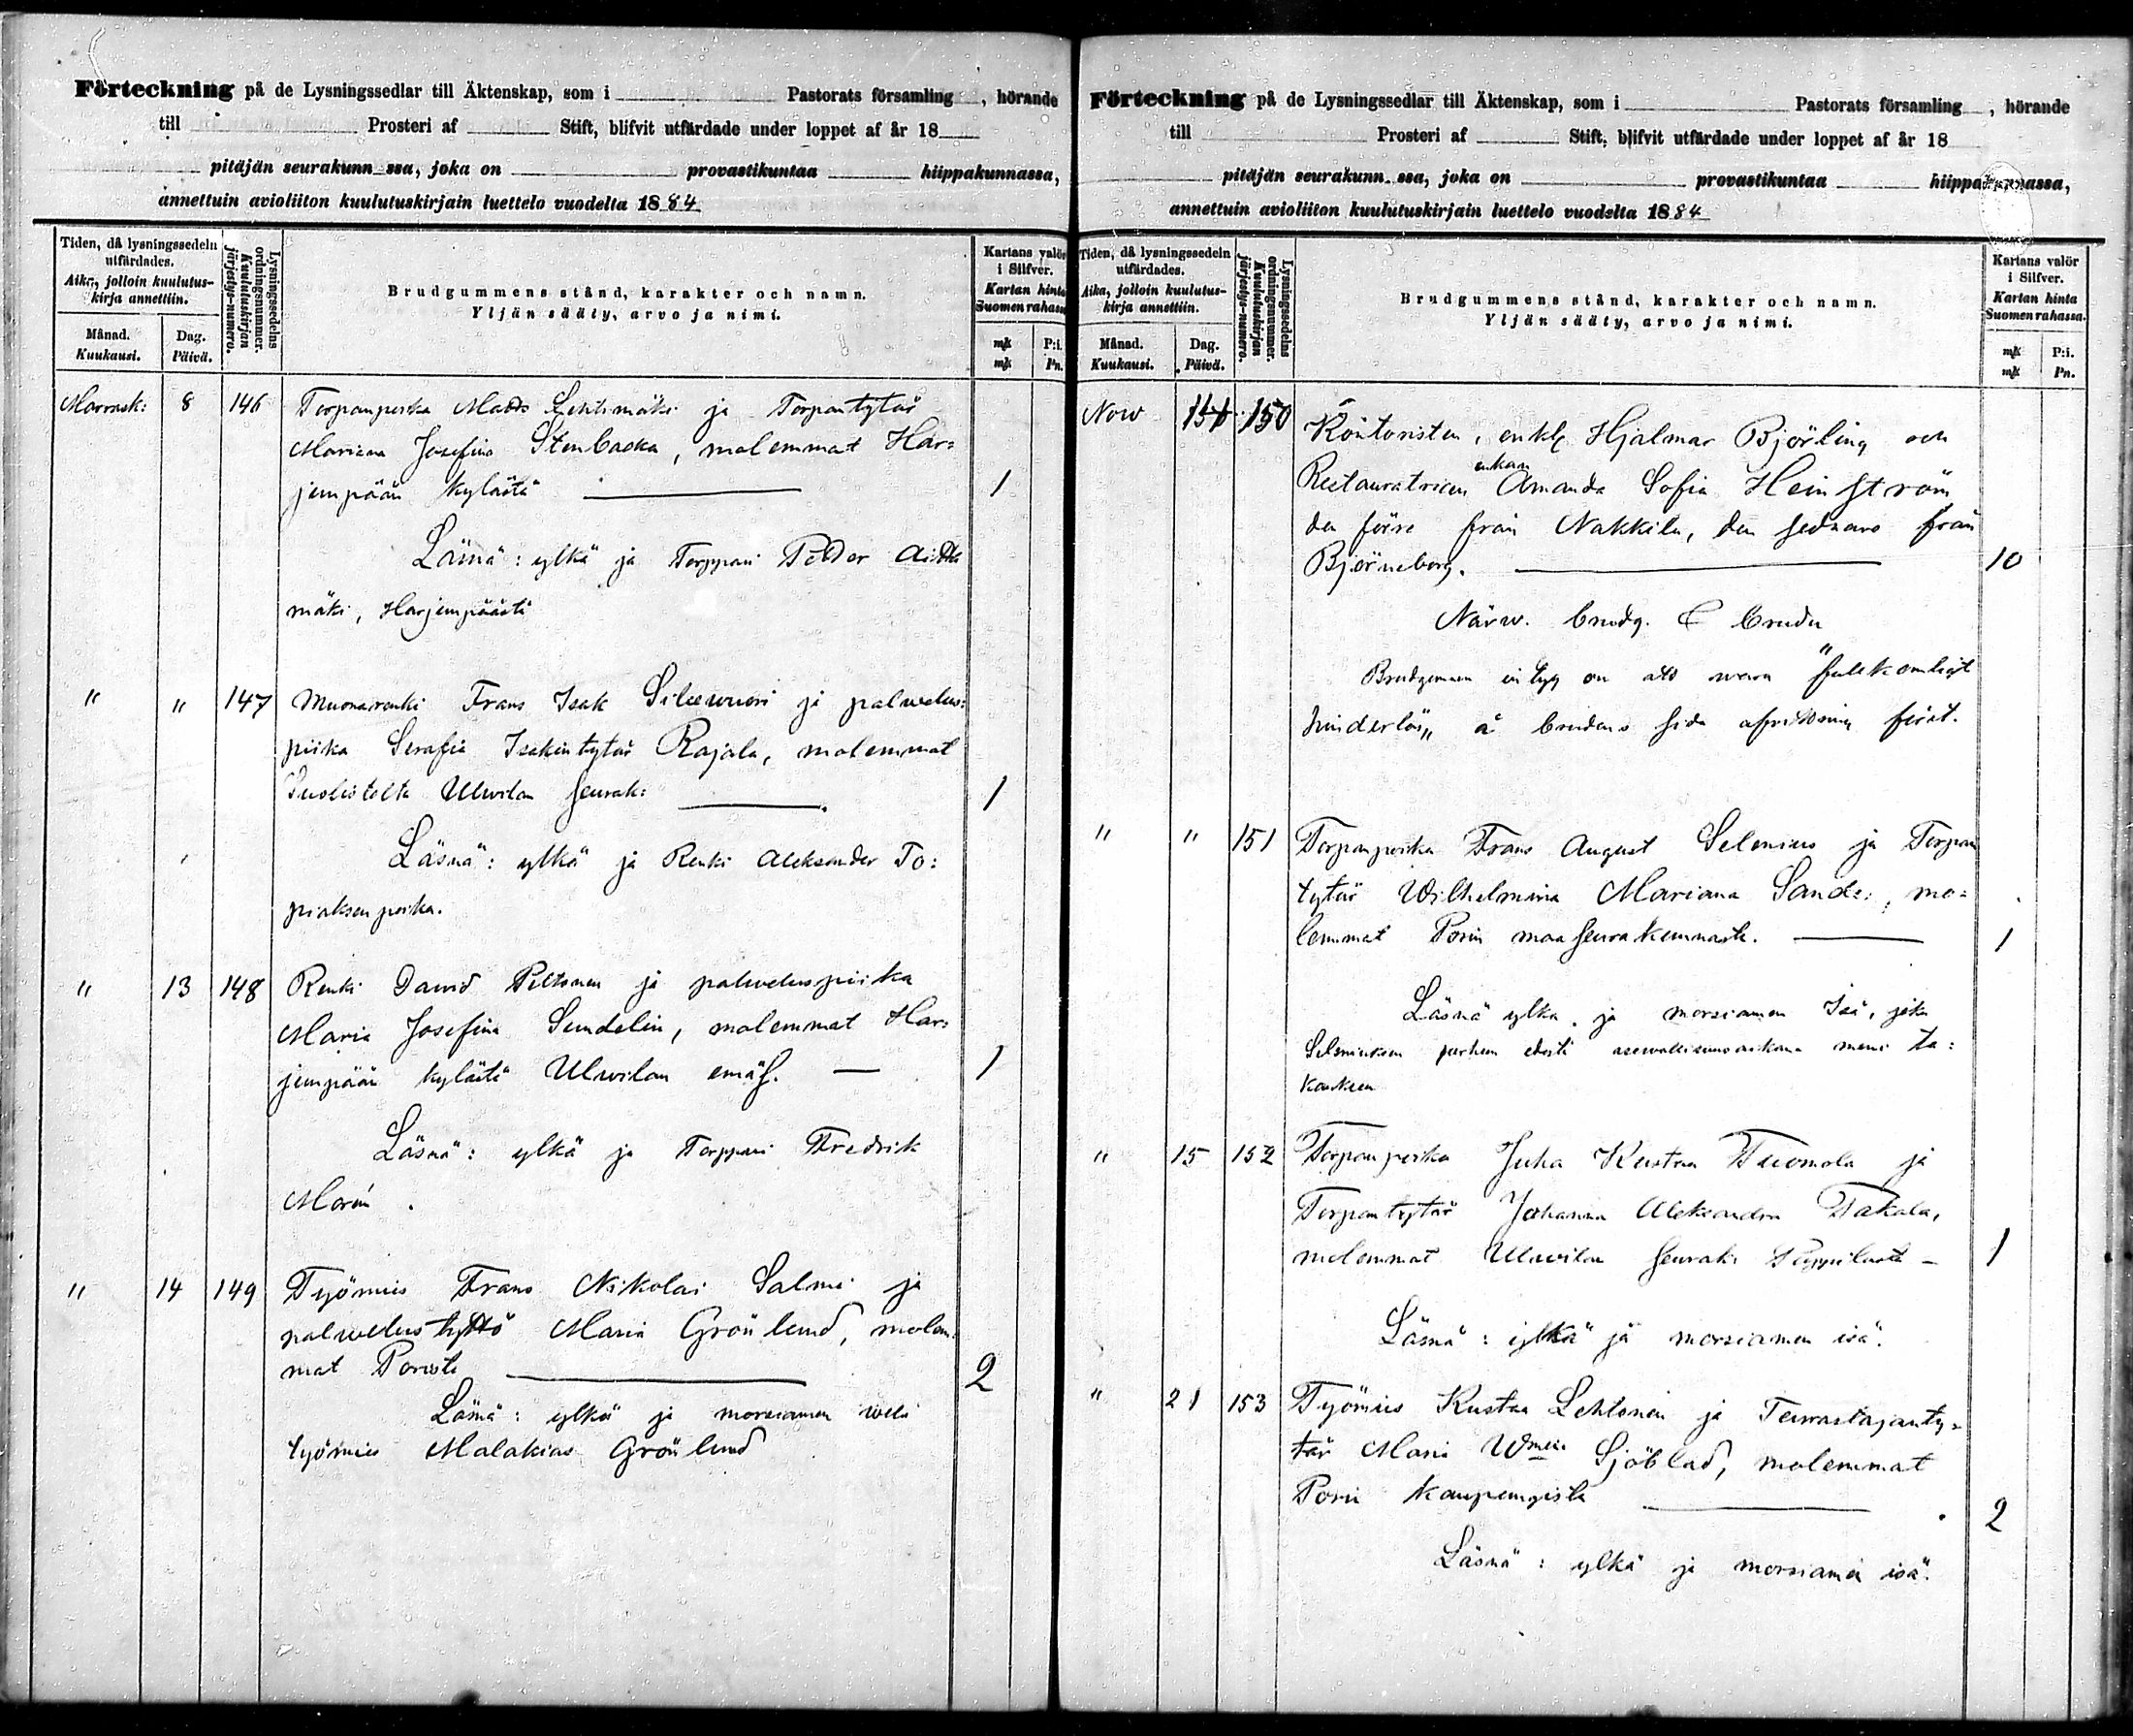 Förteckning på de Lysningssedlar till Äktenskap, som i Pastorats församling , hörande
till Prosteri af Stift, blifvit utfärdade under loppet af år 18
pitäjän seurakunn ssa, joka on provastikuntaa hiippakunnassa,
annettuin avioliiton kuulutuskirjain luettelo vuodelta 1884
Tiden, då lysningssedeln utfärdades.
Aika, jolloin kuulutus-kirja annettiin.
Månad. Kuukausi.
Dag. Päivä.
Lysningssedelns ordningsnummer.
Kuulutuskirjan järjestys-numero.
Brudgummens stånd, karakter och namn.
Yljän sääty, arvo ja nimi.
Kartans valör i Silfver.
Kartan hinta Suomen rahassa
mk P:i.
mk Pn.
Marrask: 8 146 Torpanpoika Matts Lehtimäki ja Torpantytär
Mariana Josefina Stenbacka, molemmat Har=
junpään kylästä 1
Läsnä: ylkä ja Torppari Petter
mäki, Harjunpäästä
" " 147 Muonarenki Frans Isak ja palvelus=
piika Serafia Isakintytär Rajala, molemmat
Ulwilan seurak: 1
Läsnä: ylkä ja Renki Aleksander To:
piaksenpoika.
" 13 148 Renki David Peltonen ja palveluspiika
Maria Josefina Sundelin, molemmat Har=
junpään kylästä Ulwilan emäs. 1
Läsnä: ylkä ja Torppari Fredrik
Morén.
" 14 149 Työmies Frans Nikolai Salmi ja
palwelustyttö Maria Grönlund, molem
mat Porista 2
Läsnä: ylkä ja morsiamen weli
työmies Malakias Grönlund
Förteckning på de Lysningssedlar till Äktenskap, som i Pastorats församling , hörande
till Prosteri af Stift, blifvit utfärdade under loppet af år 18
pitäjän seurakunn ssa, joka on provastikuntaa hiippakunnassa,
annettuin avioliiton kuulutuskirjain luettelo vuodelta 1884
Tiden, då lysningssedeln utfärdades.
Aika, jolloin kuulutus-kirja annettiin.
Månad. Kuukausi.
Dag. Päivä.
Lysningssedelns ordningsnummer.
Kuulutuskirjan järjestys-numero.
Brudgummens stånd, karakter och namn.
Yljän sääty, arvo ja nimi.
Kartans valör i Silfver.
Kartan hinta Suomen rahassa.
mk P:i.
mk Pn.
Now 150 Kontoristen, enkl. Hjalmar Björling och
enkan
Restauratricen Amanda Sofia Heinström
den förre från Nakkila, den sednare från
Björneborg. 10
Närw. brudg. & bruden
Brudgummen att wara "fullkomligt
hinderlös„ å brudens sida
" " 151 Torpanpoika Frans August Selenius ja Torpan
tytär Wilhelmina Mariana Sanders, mo=
lemmat Porin maaseurakunnasta. 1
Läsnä ylkä ja morsiamen Isä, joka
perheen meni ta:
kaukseen
" 15 152 Torpanpoika Juha Kustaa Tuomola ja
Torpantytär Johanna Aleksandra Takala,
molemmat Ulwilan seurak: 1
Läsnä: ylkä ja morsiamen isä.
" 21 153 Työmies Kustaa Lehtonen ja Teurastajanty=
tär Maria Wmina Sjöblad, molemmat
Porin kaupungista 2
Läsnä: ylkä ja morsiamen isä.